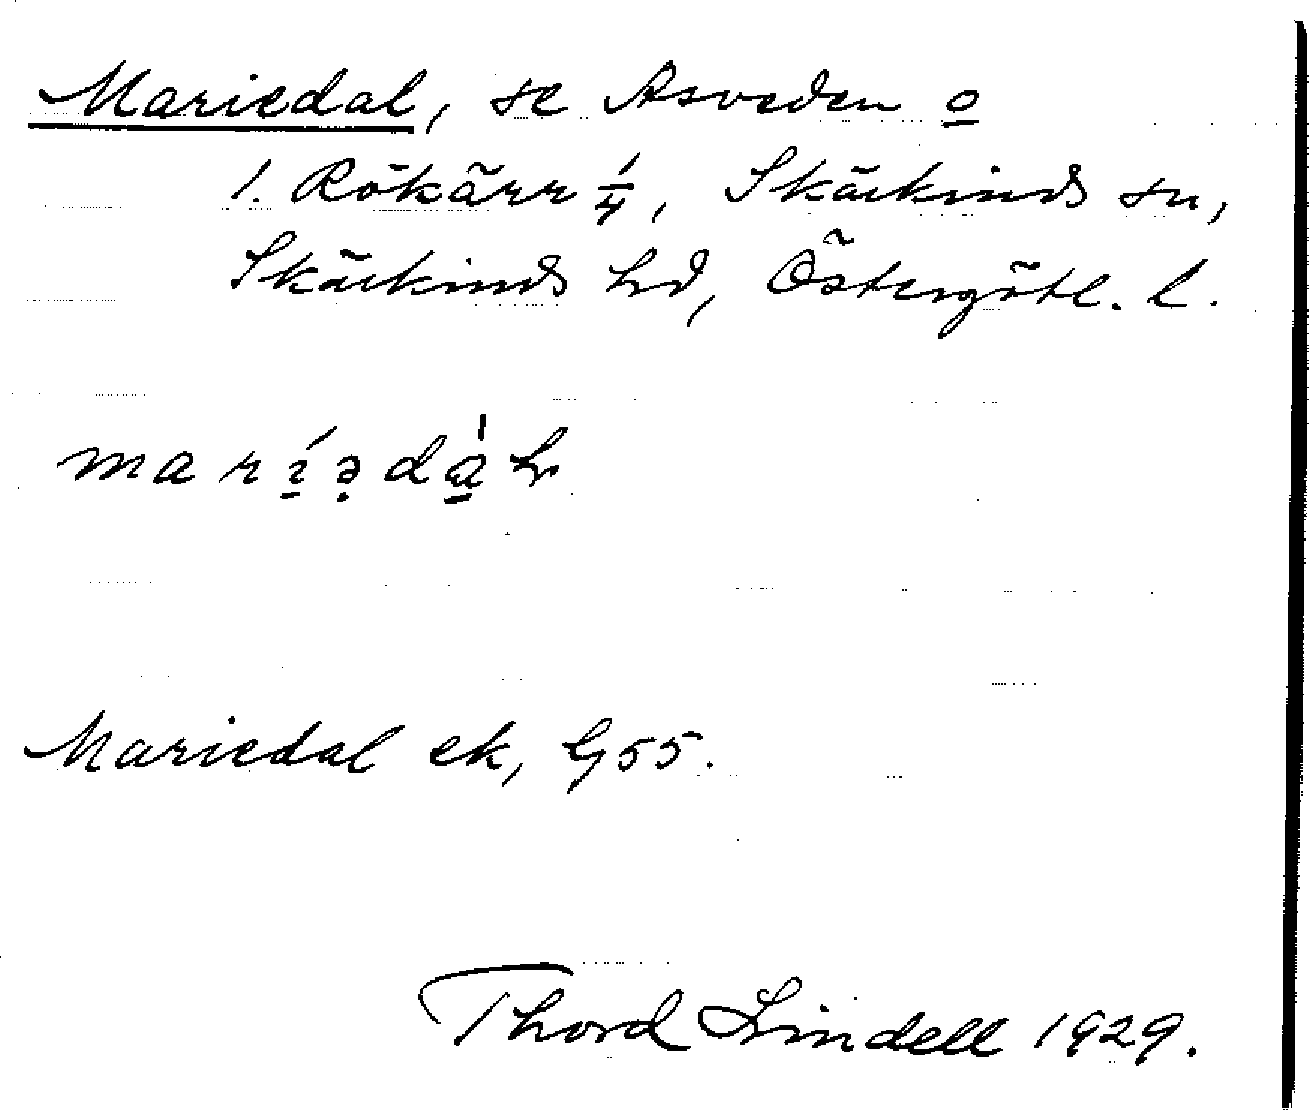 Mariedal, se Asveden o
1. Rökärr 1/4, Skärkinds sn,
Skärkinds hd, Östergötl. l.
Mariedal ek, G 55.
Thord Lindell 1929.